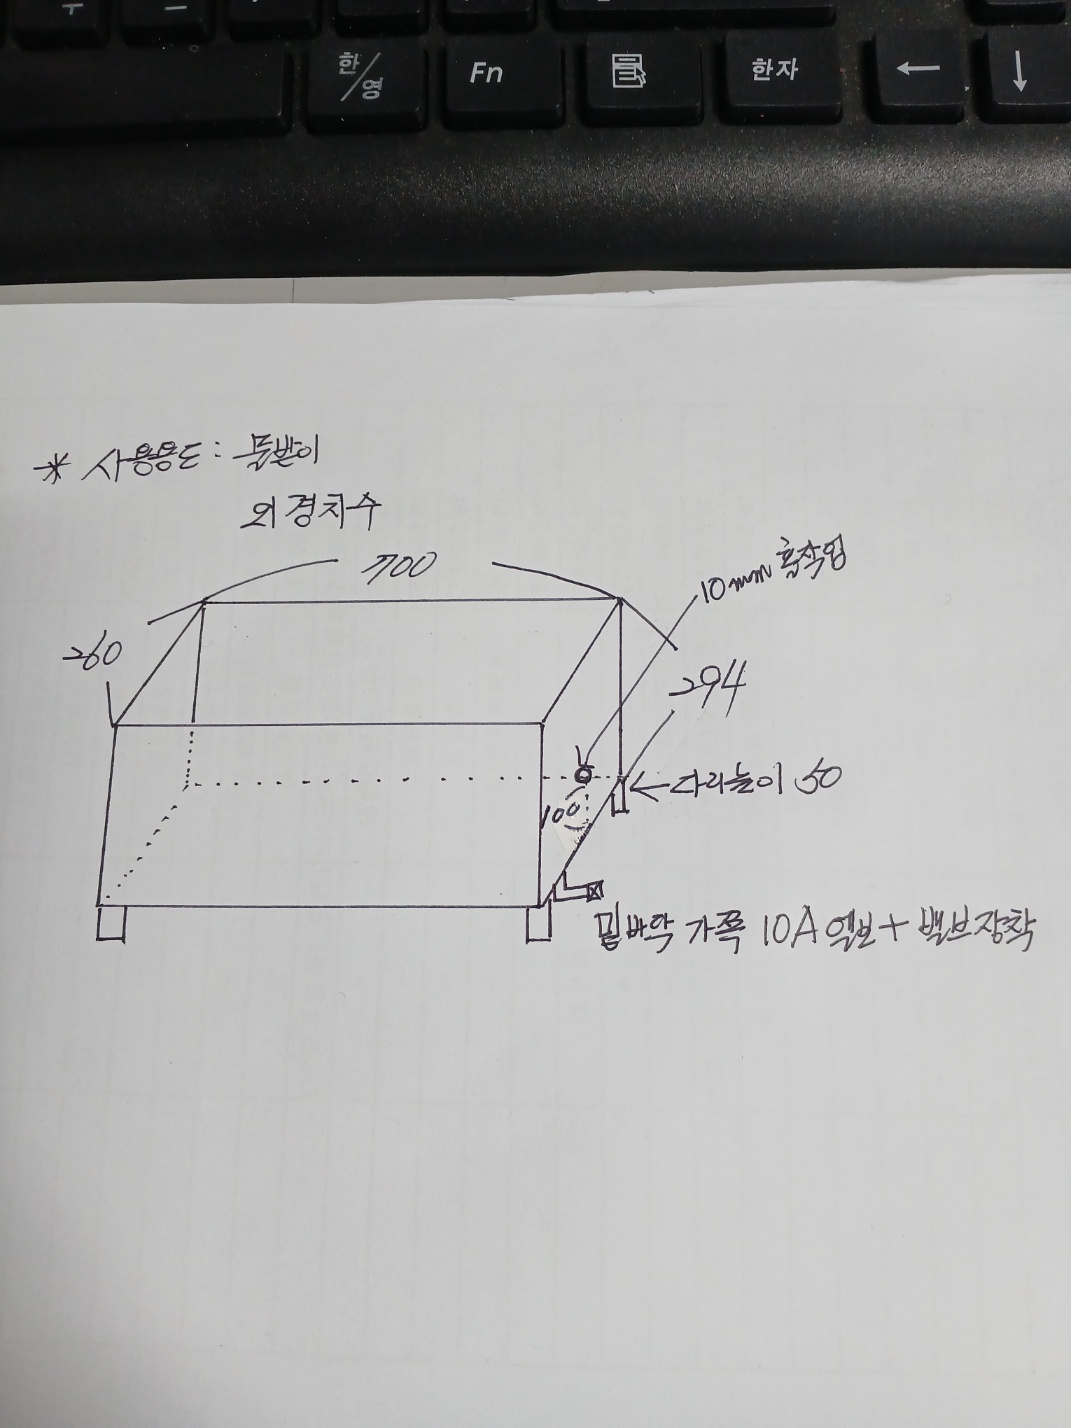 한/영 Fn 한자 ← ↓
* 사용용도 : 물받이
외경치수
700
10mm 홀작업
260
294
←다리높이 50
100
밑바닥 가쪽 10A 엘보+밸브장착